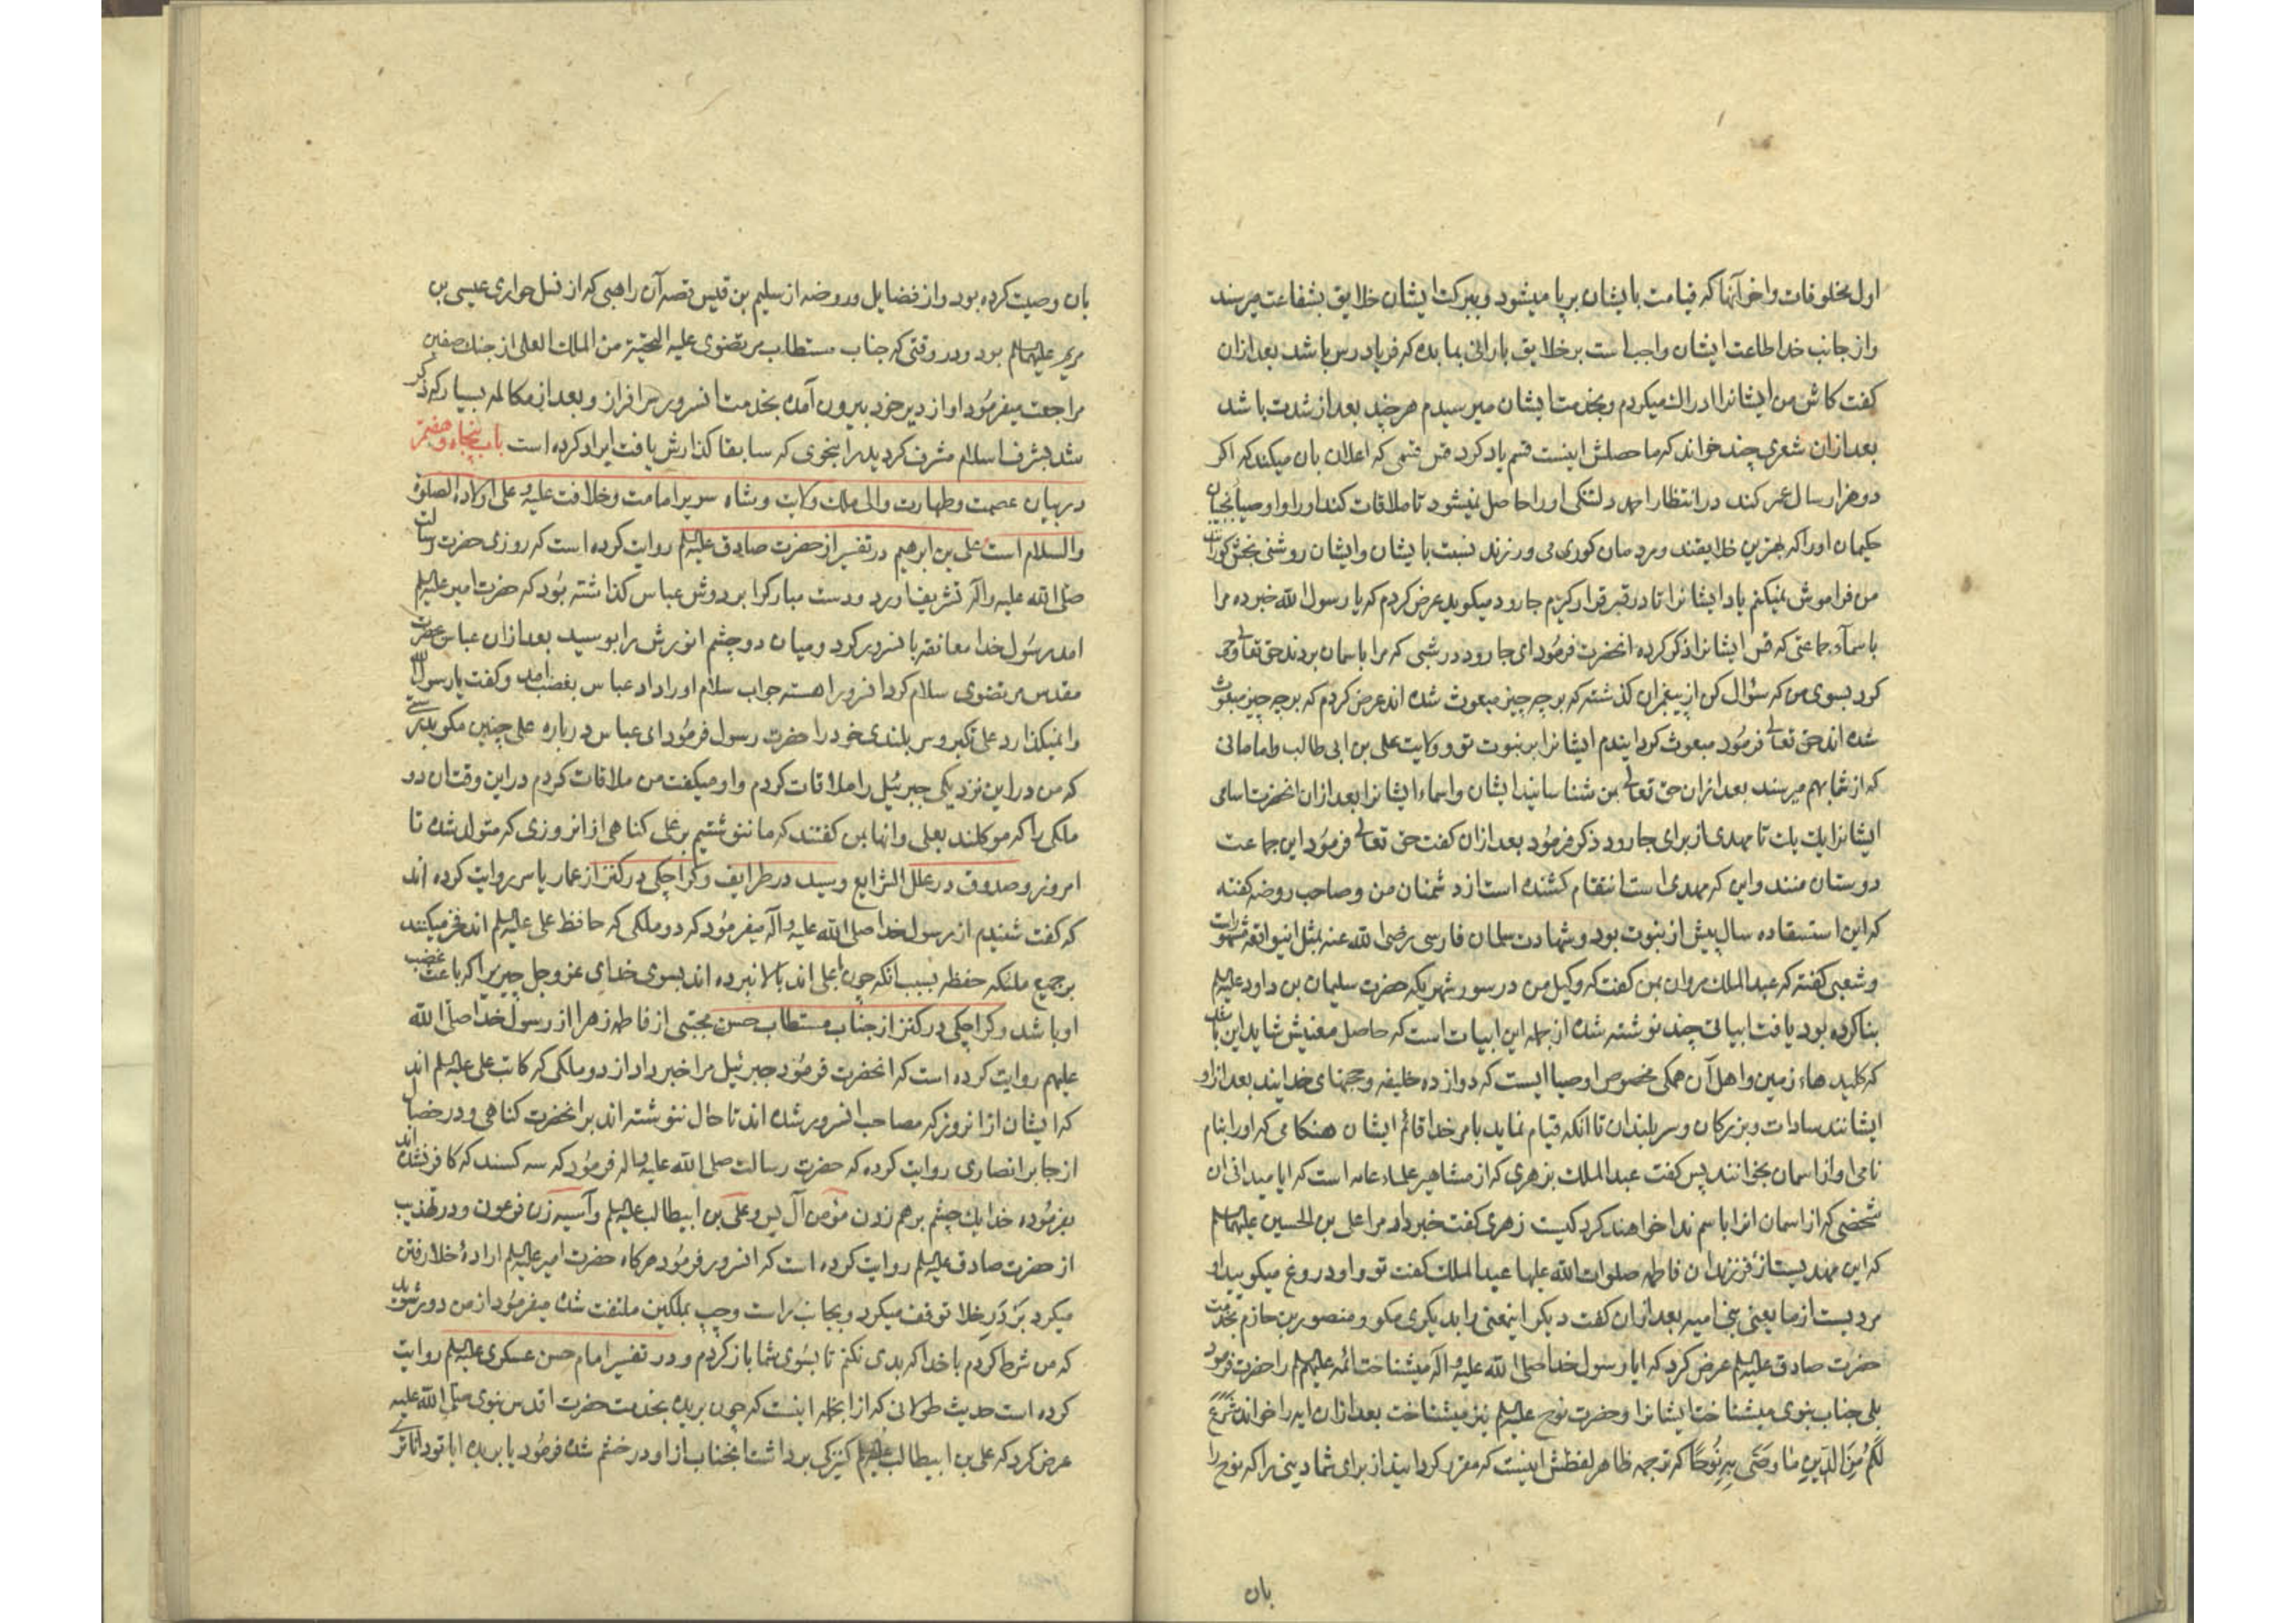 اول مخلوقات واخر آنها که قیامت بایشان برپا میشود وببرکت ایشان خلایق بشفاعت میرسند
واز جانب خدا اطاعت ایشان واجب است بر خلایق بارانی بما بده که فریادرس باشد بعد ازان
کفت کاش من ایشانرا ادراک میکردم وبخدمت ایشان میرسیدم هرچند بعد از شدت باشد
بعد ازان شعری چند خواند که ماحصلش اینست قسم یاد کرد قس قسمی که اعلان بان میکند که اکر
دو هزار سال عمر کند در انتظار احمد دلتنکی اورا حاصل نمیشود تا ملاقات کند اورا واوصیا نجیبان
حکیمان اورا که بهترین خلایقند ومردمان کوری می ورزند نسبت بایشان وایشان روشنی بخش کوراننند
من فراموش نمیکنم یاد ایشانرا تا در قبر قرار کیرم جارود میکوید عرض کردم که یا رسول الله خبر ده مرا
باسماء جماعتی که قس ایشانرا ذکر کرده انحضرت فرمود ای جارود در شبی که مرا باسمان بردند حق تعالی وحی
کرد بسوی من که سؤال کن از پیغمبران کذشته که بر چه چیز مبعوث شده اند عرض کردم که بر چه چیز مبعوث
شده اند حق تعالی فرمود مبعوث کردانیدم ایشانرا بر نبوت تو وولایت علی بن ابی طالب وامامانی
که از شما بهم میرسند بعد ازان حق تعالی بمن شناسانید ایشان واسماء ایشانرا بعد ازان انحضرت اسامی
ایشانرا یک یک تا مهدی از برای جارود ذکر فرمود بعد ازان کفت حق تعالی فرمود این جماعت
دوستان منند واین که مهدی است انتقام کشنده است از دشمنان من وصاحب روضه کفته
که این استسقا ده سال پیش از نبوت بود وشهادت سلمان فارسی رضی الله عنه بمثل اینواقعه مشهور است
وشعبی کفته که عبد الملک مروان بمن کفت که وکیل من در سور شهریکه حضرت سلیمان بن داود علیه السلم
بنا کرده بود یافت ابیاتی چند نوشته شده از جمله این ابیات است که حاصل معنیش شاید این باشد
که کلید هاء زمین واهل آن همکی مخصوص اوصیا ایست که دوازده خلیفه وحجتهای خدایند بعد از او
ایشانند سادات وبزرکان وسربلندان تا انکه قیام نماید بامر خدا قائم ایشان هنکامی که اورا بنام
نامی او از اسمان بخوانند پس کفت عبد الملک بزهری که از مشاهیر علماء عامه است که ایا میدانی ان
شخصی که از اسمان انرا باسم ندا خواهند کرد کیست زهری کفت خبر داد مرا علی بن الحسین علیهما السلم
که این مهدیست از فرزندان فاطمه صلوات الله علیها عبد الملک کفت تو واو دروغ میکویید او
مردیست از ما یعنی بنی امیه بعد ازان کفت دیکر اینمعنی را بدیکری مکو ومنصور بن حازم بخدمت
حضرت صادق علیه السلم عرض کرد که ایا رسول خدا صلی الله علیه وآله میشناخت ائمه علیهم السلم را حضرت فرمود
بلی جناب نبوی میشناخت ایشانرا وحضرت نوح علیه السلم نیز میشناخت بعد ازان ایه را خواند شَرَعَ
لَکُم مِنَ الدّینِ مٰا وَصّی بِهِ نُوحًا که ترجمه ظاهر لفظش اینست که مقرر کردانید از برای شما دینی را که نوح را
بان
بان وصیت کرده بود واز فضایل وروضه از سلیم بن قیس قصه آن راهبی که از نسل حواری عیسی بن
مریم علیهما السلم بود ودر وقتی که جناب مستطاب مرتضوی علیه التحیة من الملک العلی از جنک صفین
مراجعت میفرمود او از دیر خود بیرون آمده بخدمت انسرور سرافراز وبعد از مکالمه بسیار که ذکر
شد بشرف اسلام مشرف کردید را بنحوی که سابقا کذارش یافت ایراد کرده است باب پنجاه وهفتم
در بیان عصمت وطهارت والی ملک ولایت وشاه سریر امامت وخلافت علیه وعلی اولاده الصلوة
والسلام است علی بن ابرهیم در تفسیر از حضرت صادق علیه السلم روایت کرده است که روزی حضرت رسالت
صلی الله علیه واله تشریف اورد ودست مبارکرا بر دوش عباس کذاشته بود که حضرت امیر علیه السلم
امد رسول خدا معانقه بانسرور کرد ومیان دو چشم انورش را بوسید بعد ازان عباس بحضرت
مقدس مرتضوی سلام کرد انسرور اهسته جواب سلام اورا داد عباس بغضب امد وکفت یا رسول الله
وانمیکذارد علی تکبر وسربلندی خود را حضرت رسول فرمود ای عباس درباره علی چنین مکو بدرستی
که من در این نزدیکی جبرئیل را ملاقات کردم واو میکفت من ملاقات کردم در این وقت ان دو
ملکی را که موکلند بعلی وانها بمن کفتند که ما ننوشتیم بر علی کناهی از انروزی که متولد شده تا
امروز وصدوق در علل الشرایع وسید در طرایف وکراجکی در کنز از عمار یاسر روایت کرده اند
که کفت شنیدم از رسول خدا صلی الله علیه وآله میفرمود که دو ملکی که حافظ علی علیه السلم اند فخر میکنند
بر جمیع ملئکه حفظه بسبب انکه چون با علی اند بالا نبرده اند بسوی خدای عز وجل چیزیرا که باعث غضب
او باشد وکراجکی در کنز از جناب مستطاب حسن مجتبی از فاطمه زهرا از رسول خدا صلی الله
علیهم روایت کرده است که انحضرت فرمود جبرئیل مرا خبر داد از دو ملکی که کاتب علی علیه السلم اند
که ایشان از انروز که مصاحب انسرور شده اند تا حال ننوشته اند بر انحضرت کناهی ودر خصال
از جابر انصاری روایت کرده که حضرت رسالت صلی الله علیه واله فرمود که سه کسند که کافر نشده اند
بفرموده خدا یک چشم بر هم زدن مؤمن آل یس وعلی بن ابیطالب علیه السلم وآسیه زن فرعون ودر تهذیب
از حضرت صادق علیه السلم روایت کرده است که انسرور فرمود هرکاه حضرت امیر علیه السلم ارادهٔ خلا رفتن
میکرد بَر دَرِ خلا توقف میکرد وبجانب راست وچپ بملکین ملتفت شده میفرمود از من دور شوید
که من شرط کردم با خدا که بدی نکنم تا بسوی شما باز کردم ودر تفسیر امام حسن عسکری علیه السلم روایت
کرده است حدیث طولانی که از انجمله اینست که چون بریده بخدمت حضرت اقدس نبوی صلی الله علیه
عرض کرد که علی بن ابیطالب علیه السلم کنیزکی برداشت انجناب از او در خشم شده فرمود یا بریده ایا تو